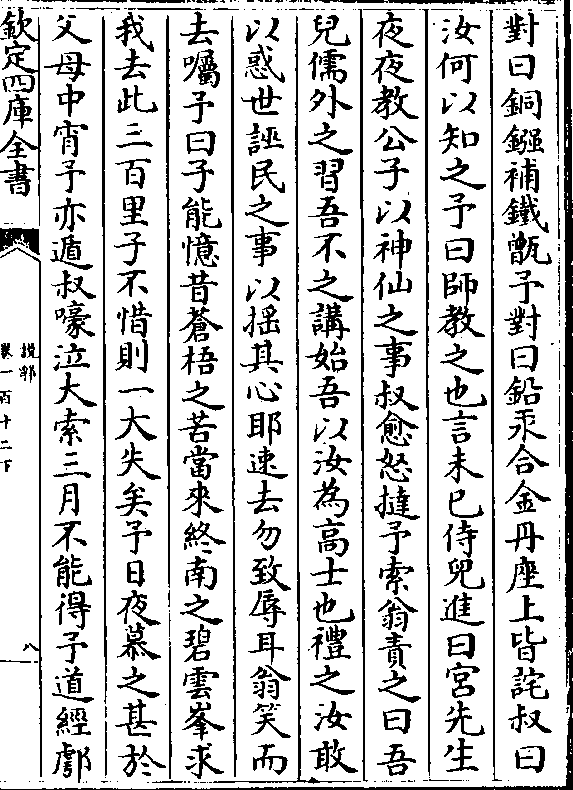 對曰銅鏹補鐵甑予對曰鉛汞合金丹座上皆詫叔曰
汝何以知之予曰師教之也言未已侍兒進曰宮先生
夜夜教公子以神仙之事叔愈怒撻予索翁責之曰吾
兒儒外之習吾不之講始吾以汝為高士也禮之汝敢
以惑世誣民之事以揺其心耶速去勿致辱耳翁笑而
去囑予曰子能憶昔蒼梧之苦當來終南之碧雲峯求
我去此三百里子不惜則一大失矣予日夜慕之甚於
父母中宵予亦遁叔嚎泣大索三月不能得予道經鄠
欽定四庫全書
說郛
卷一百十二下
八